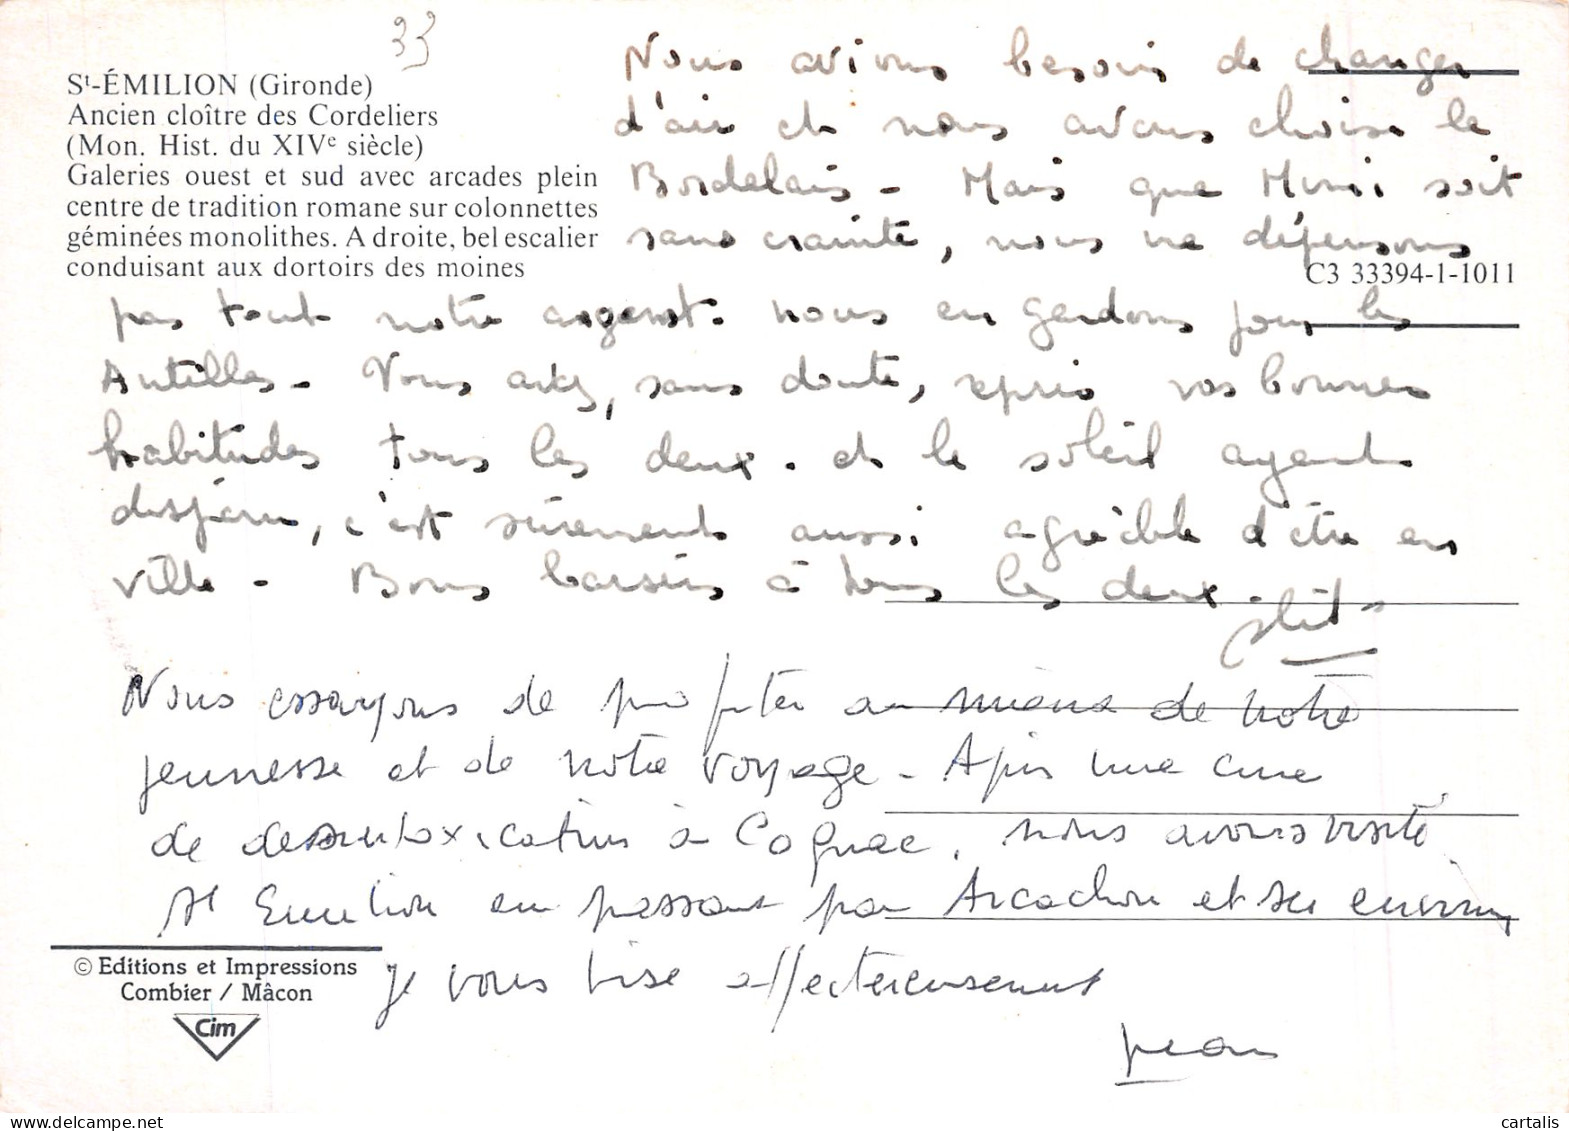 33
St-ÉMILION (Gironde)
Ancien cloître des Cordeliers
(Mon. Hist. du XIVe siècle)
Galeries ouest et sud avec arcades plein
centre de tradition romane sur colonnettes
géminées monolithes. A droite, bel escalier
conduisant aux dortoirs des moines
C3 33394-1-1011
Nous avions besoin de changer
d'air et nous avons choisi le
Bordelais - Mais que Mimi soit
sans crainte, nous ne dépensons
pas tout notre argent. nous en gardons pour les
Antilles - Vous avez, sans doute, repris vos bonnes
habitudes tous les deux. et le soleil ayant
disparu, c'est sûrement aussi agréable d'être en
ville - Bons baisers à tous les deux.
Nous essayons de profiter au mieux de notre
jeunesse et de notre voyage - Après une cure
de desintoxication à Cognac, nous avons visité
St Emilion en passant par Arcachon et ses environs
je vous bise affectueusement
Jean
© Editions et Impressions
Combier / Mâcon
Cim
cartalis
www.delcampe.net